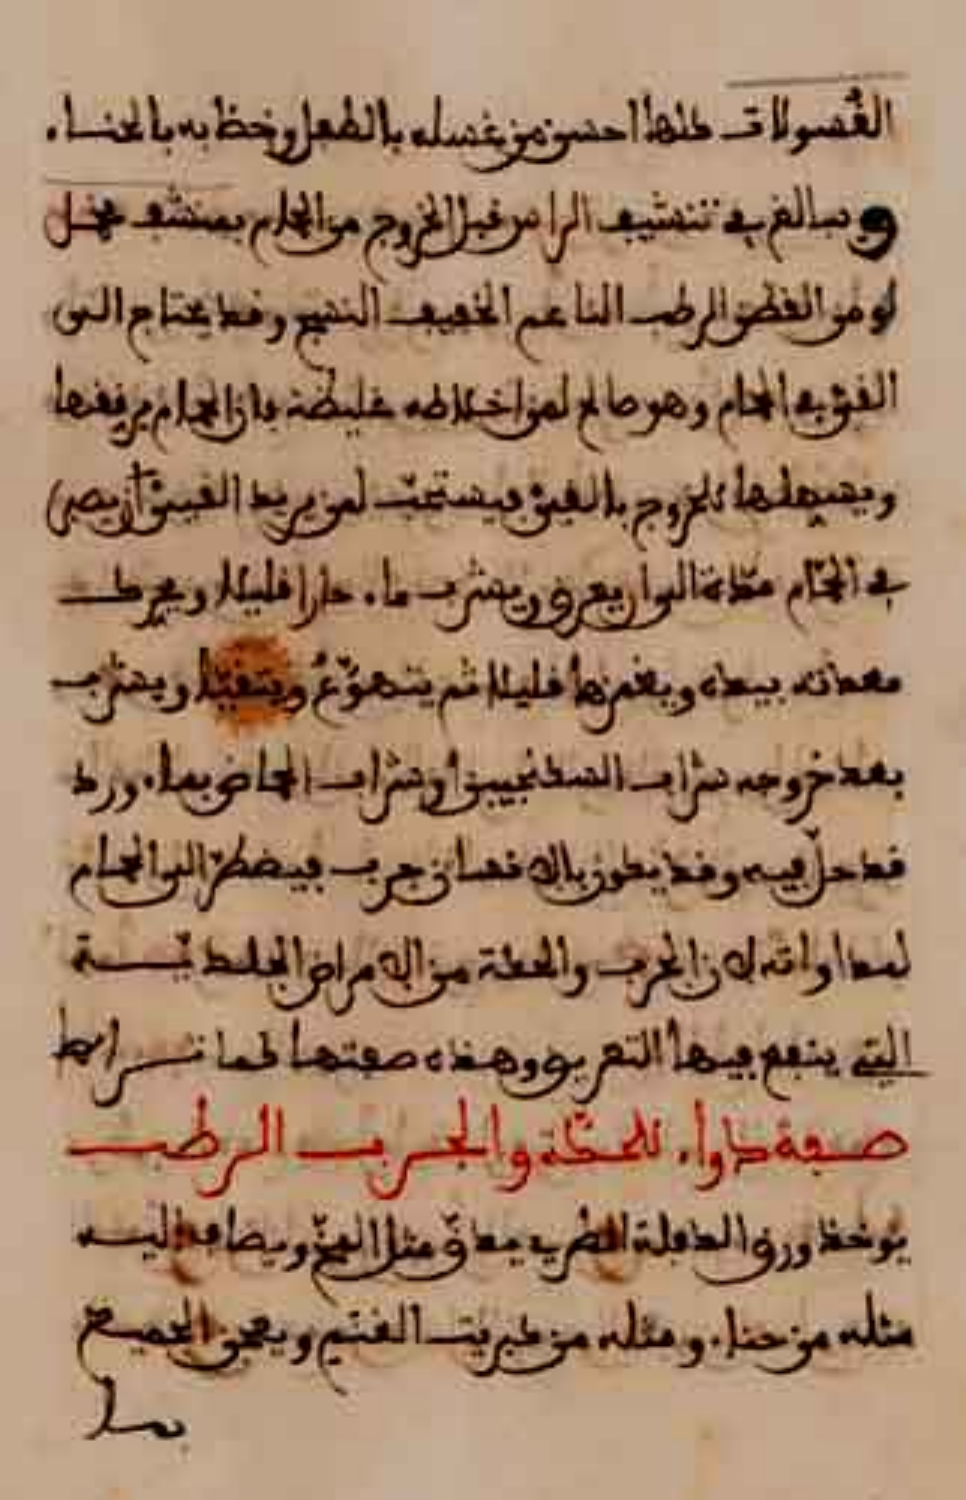 الغسولات كلها احسن من غسله بالطفل وخظابه بالحناء
ويبالغ في تنشيف الراس قبل الخروج من الحمام بمنشف مخمل
او من القطن الرطب الناعم الخفيف النسج وقد يحتاج الى
القئ في الحمام وهو صالح لمن اخلاطه غليظة فان الحمام يرققها
ويسهلها للخروج بالقيئ فيستحب لمن يريد القيئ ان يصبر
في الحمّام مدّة الى ان يعرق ويشرب ماء حارا قليلا ويحرك
معدته بيده ويغمزها قليلا ثم يتهوّع ويتقيّا ويشرب
بعد خروجه شراب السكنجبين او شراب الحماض بماء ورد
قد حلّ فيه وقد يكون بالانسان جرب فيضطرّ الى الحمام
لمداواته لان الجرب والحكة من الامراض الجلديّة
التي ينفع فيها التعريق وهذه صفتها كما
صفة دواء للحكّة والجرب الرطب
يوخذ ورق الدفلة الطري يدقّ مثل المخ ويضاف اليه
مثله من حناء ومثله من كبريت الغنم ويعجن الجميع
بماء